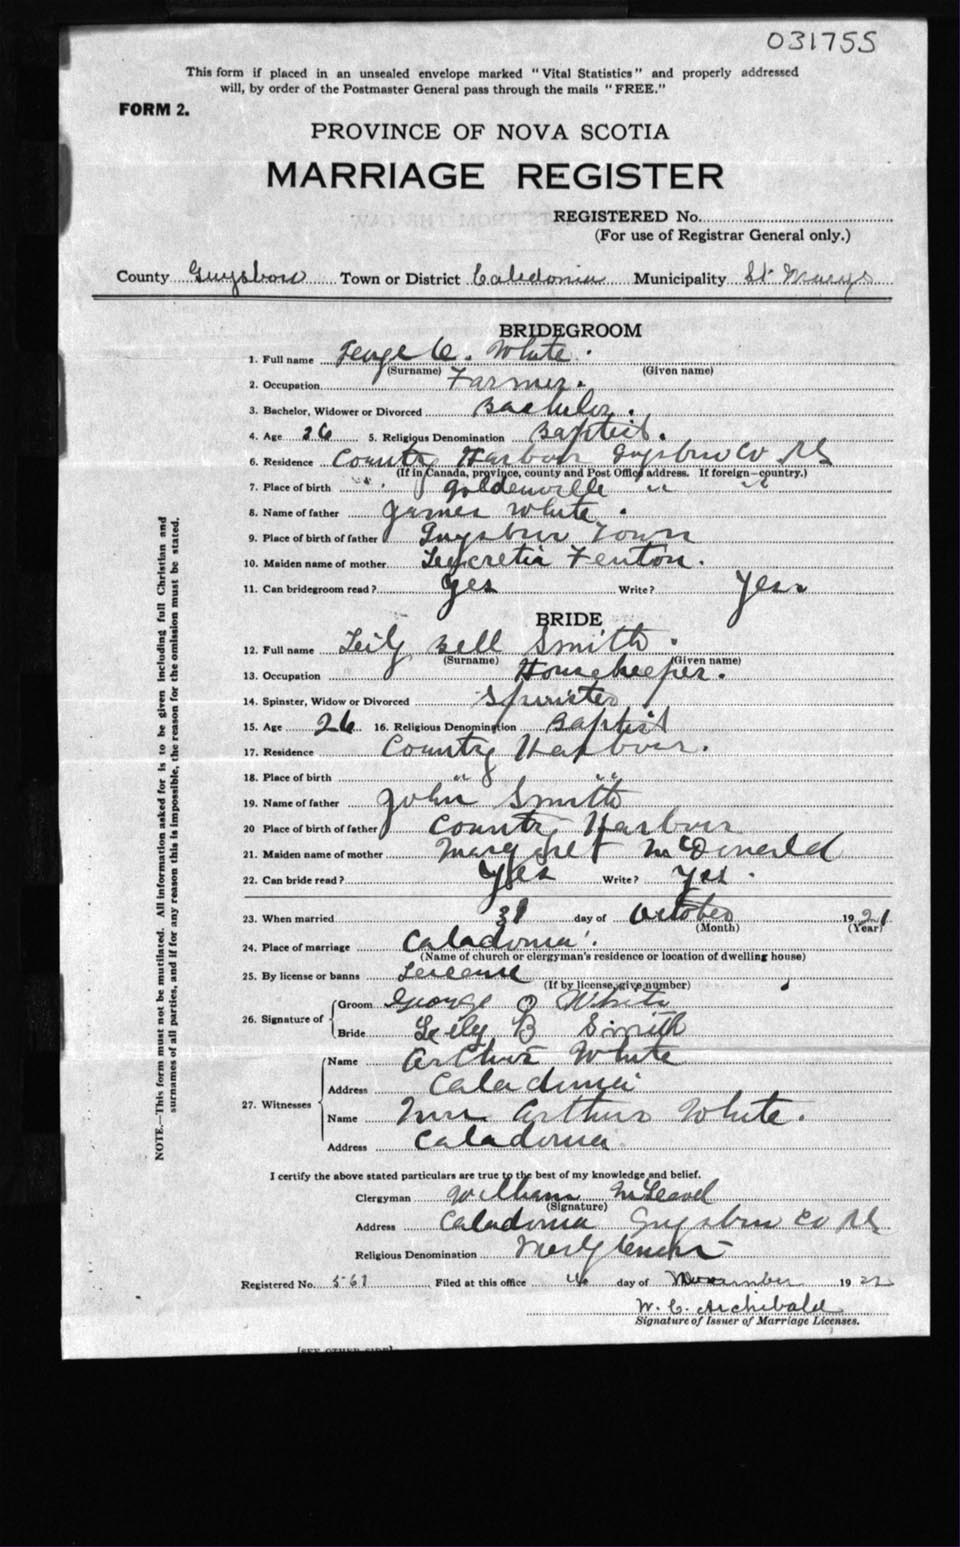 031755
This form if placed in an unsealed envelope marked "Vital Statistics" and properly addressed
will, by order of the Postmaster General pass through the mails "FREE."
FORM 2.
PROVINCE OF NOVA SCOTIA
MARRIAGE REGISTER
REGISTERED No.
(For use of Registrar General only.)
County Guysboro Town or District Caledonia Municipality St Marys
BRIDEGROOM
1. Full name White
(Surname) (Given name)
2. Occupation Farmer.
3. Bachelor, Widower or Divorced Bachelor.
4. Age 26 5. Religious Denomination Baptist.
6. Residence Country Harbour Guysboro Co NS
(If in Canada, province, county and Post Office address. If foreign—country.)
7. Place of birth Goldenville " "
8. Name of father James White
9. Place of birth of father Guysboro Town
10. Maiden name of mother Lucretia Fenton.
11. Can bridegroom read? Yes Write? Yes
BRIDE
12. Full name Leily Bell Smith
(Surname) (Given name)
13. Occupation Housekeeper.
14. Spinster, Widow or Divorced Spinster
15. Age 26 16. Religious Denomination Baptist
17. Residence Country Harbour.
18. Place of birth " "
19. Name of father John Smith
20 Place of birth of father Country Harbour
21. Maiden name of mother Margaret McDonald
22. Can bride read? Yes Write? Yes.
23. When married 31 day of October 1921
(Month) (Year)
24. Place of marriage Caladonia.
(Name of church or clergyman's residence or location of dwelling house)
25. By license or banns
(If by license, give number)
26. Signature of Groom George White
Bride Leily B Smith
27. Witnesses Name Arthur White
Address Caladonia
Name Mrs Arthur White.
Address Caladonia
I certify the above stated particulars are true to the best of my knowledge and belief.
Clergyman William McLeod
(Signature)
Address Caladonia Guysboro Co NS
Religious Denomination
Registered No. 561 Filed at this office day of November 1922
W. C. Archibald
Signature of Issuer of Marriage Licenses.
[SEE OTHER SIDE]
NOTE.—This form must not be mutilated. All information asked for is to be given including full Christian and
surnames of all parties, and if for any reason this is impossible, the reason for the omission must be stated.